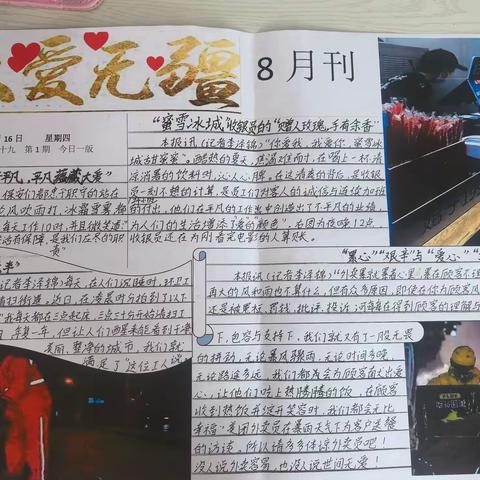 爱无疆
8月刊
16日 星期四
十九 第1期 今日一版
"蜜雪冰城"收银员的"赠人玫瑰,手有余香"
本报讯(记者李泽锦)"你爱我,我爱你,蜜雪冰
城甜蜜蜜"。酷热的夏天,焦渴难耐,在喝上一杯清
凉消暑的饮料时,沁人心脾。在这清爽的背后,是收银
员一刻不想的计算,是员工们对客人的诚信与连续加班
的付出,他们在平凡的工作岗中创造出了不平凡的业绩,
为人们的生活增添了"爱的颜色",右图为夜晚12点,
收银员还在为刚看完电影的人算账。
平凡,平凡蕴藏大爱"
保安们都恪守职守的站在
风吹雨打,冰霜雪雾都
每天工作10时,并且微笑道"为
活有保障,是我们应尽的职
责"
记者李泽锦)每天,在人们沉睡时,环卫工
扫街道,近日,在凌晨时分拍到了以下
"我每天都在3点起床,3点三十分开始清扫工
年复一年,但让人们也要来能看到干净
美丽、整净的城市,我们就
满足了"这位工人说
"黑心""艰辛"与"爱心"
本报讯(记者李泽锦)"外卖员就黑着心里,果在顾客不谅
再大的风和雨也不算什么,但有众多原因,即使在你为顾客风
还是被累坏,罚钱,批评,投诉,河每每在得到顾客的理解与
下,包容与支持下,我们就又有了一股无畏
的拼劲,无论暴风骤雨,无论时间多晚,
无论路途多远,我们都会为顾客献出大爱
心,让他们吃上热腾腾的饭,在顾客
收到热饭并绽开笑容时,我们都无比
幸福"美团外卖员在暴雨天气下为客户送餐
的访谈,所以请多多体谅外卖员吧!
没人说外卖容易,也没人说世间无爱!